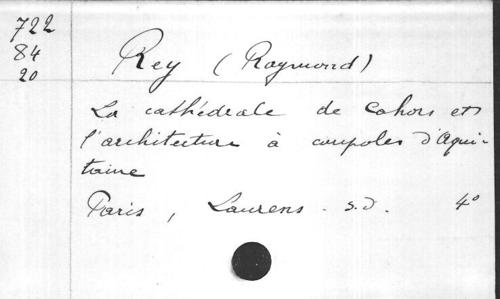 722
84
20
Rey (Raymond)
La cathédrale de Cahors et
l'architecture à coupoles d'Aqui-
taine
Paris, Laurens. s.d. 4°